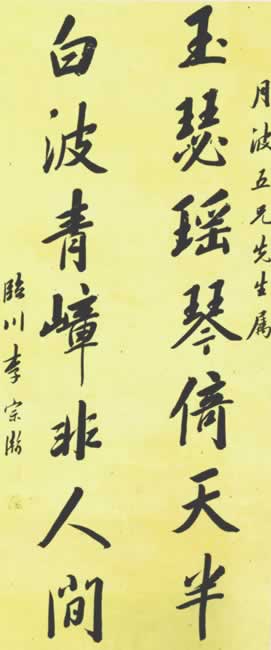 月波五兄先生属
玉瑟瑶琴倚天半
白波青嶂非人間
臨川李宗瀚